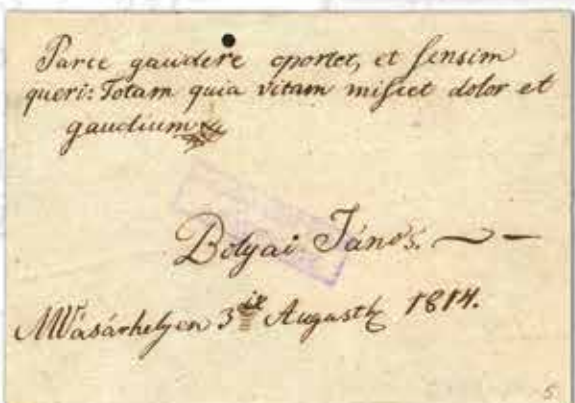 Parce gaudere oportet, et sensim
queri: Totam quia vitam miscet dolor et
gaudium
Bolyai János.
MVásárhelyen 3ik Augustb 1814.
5